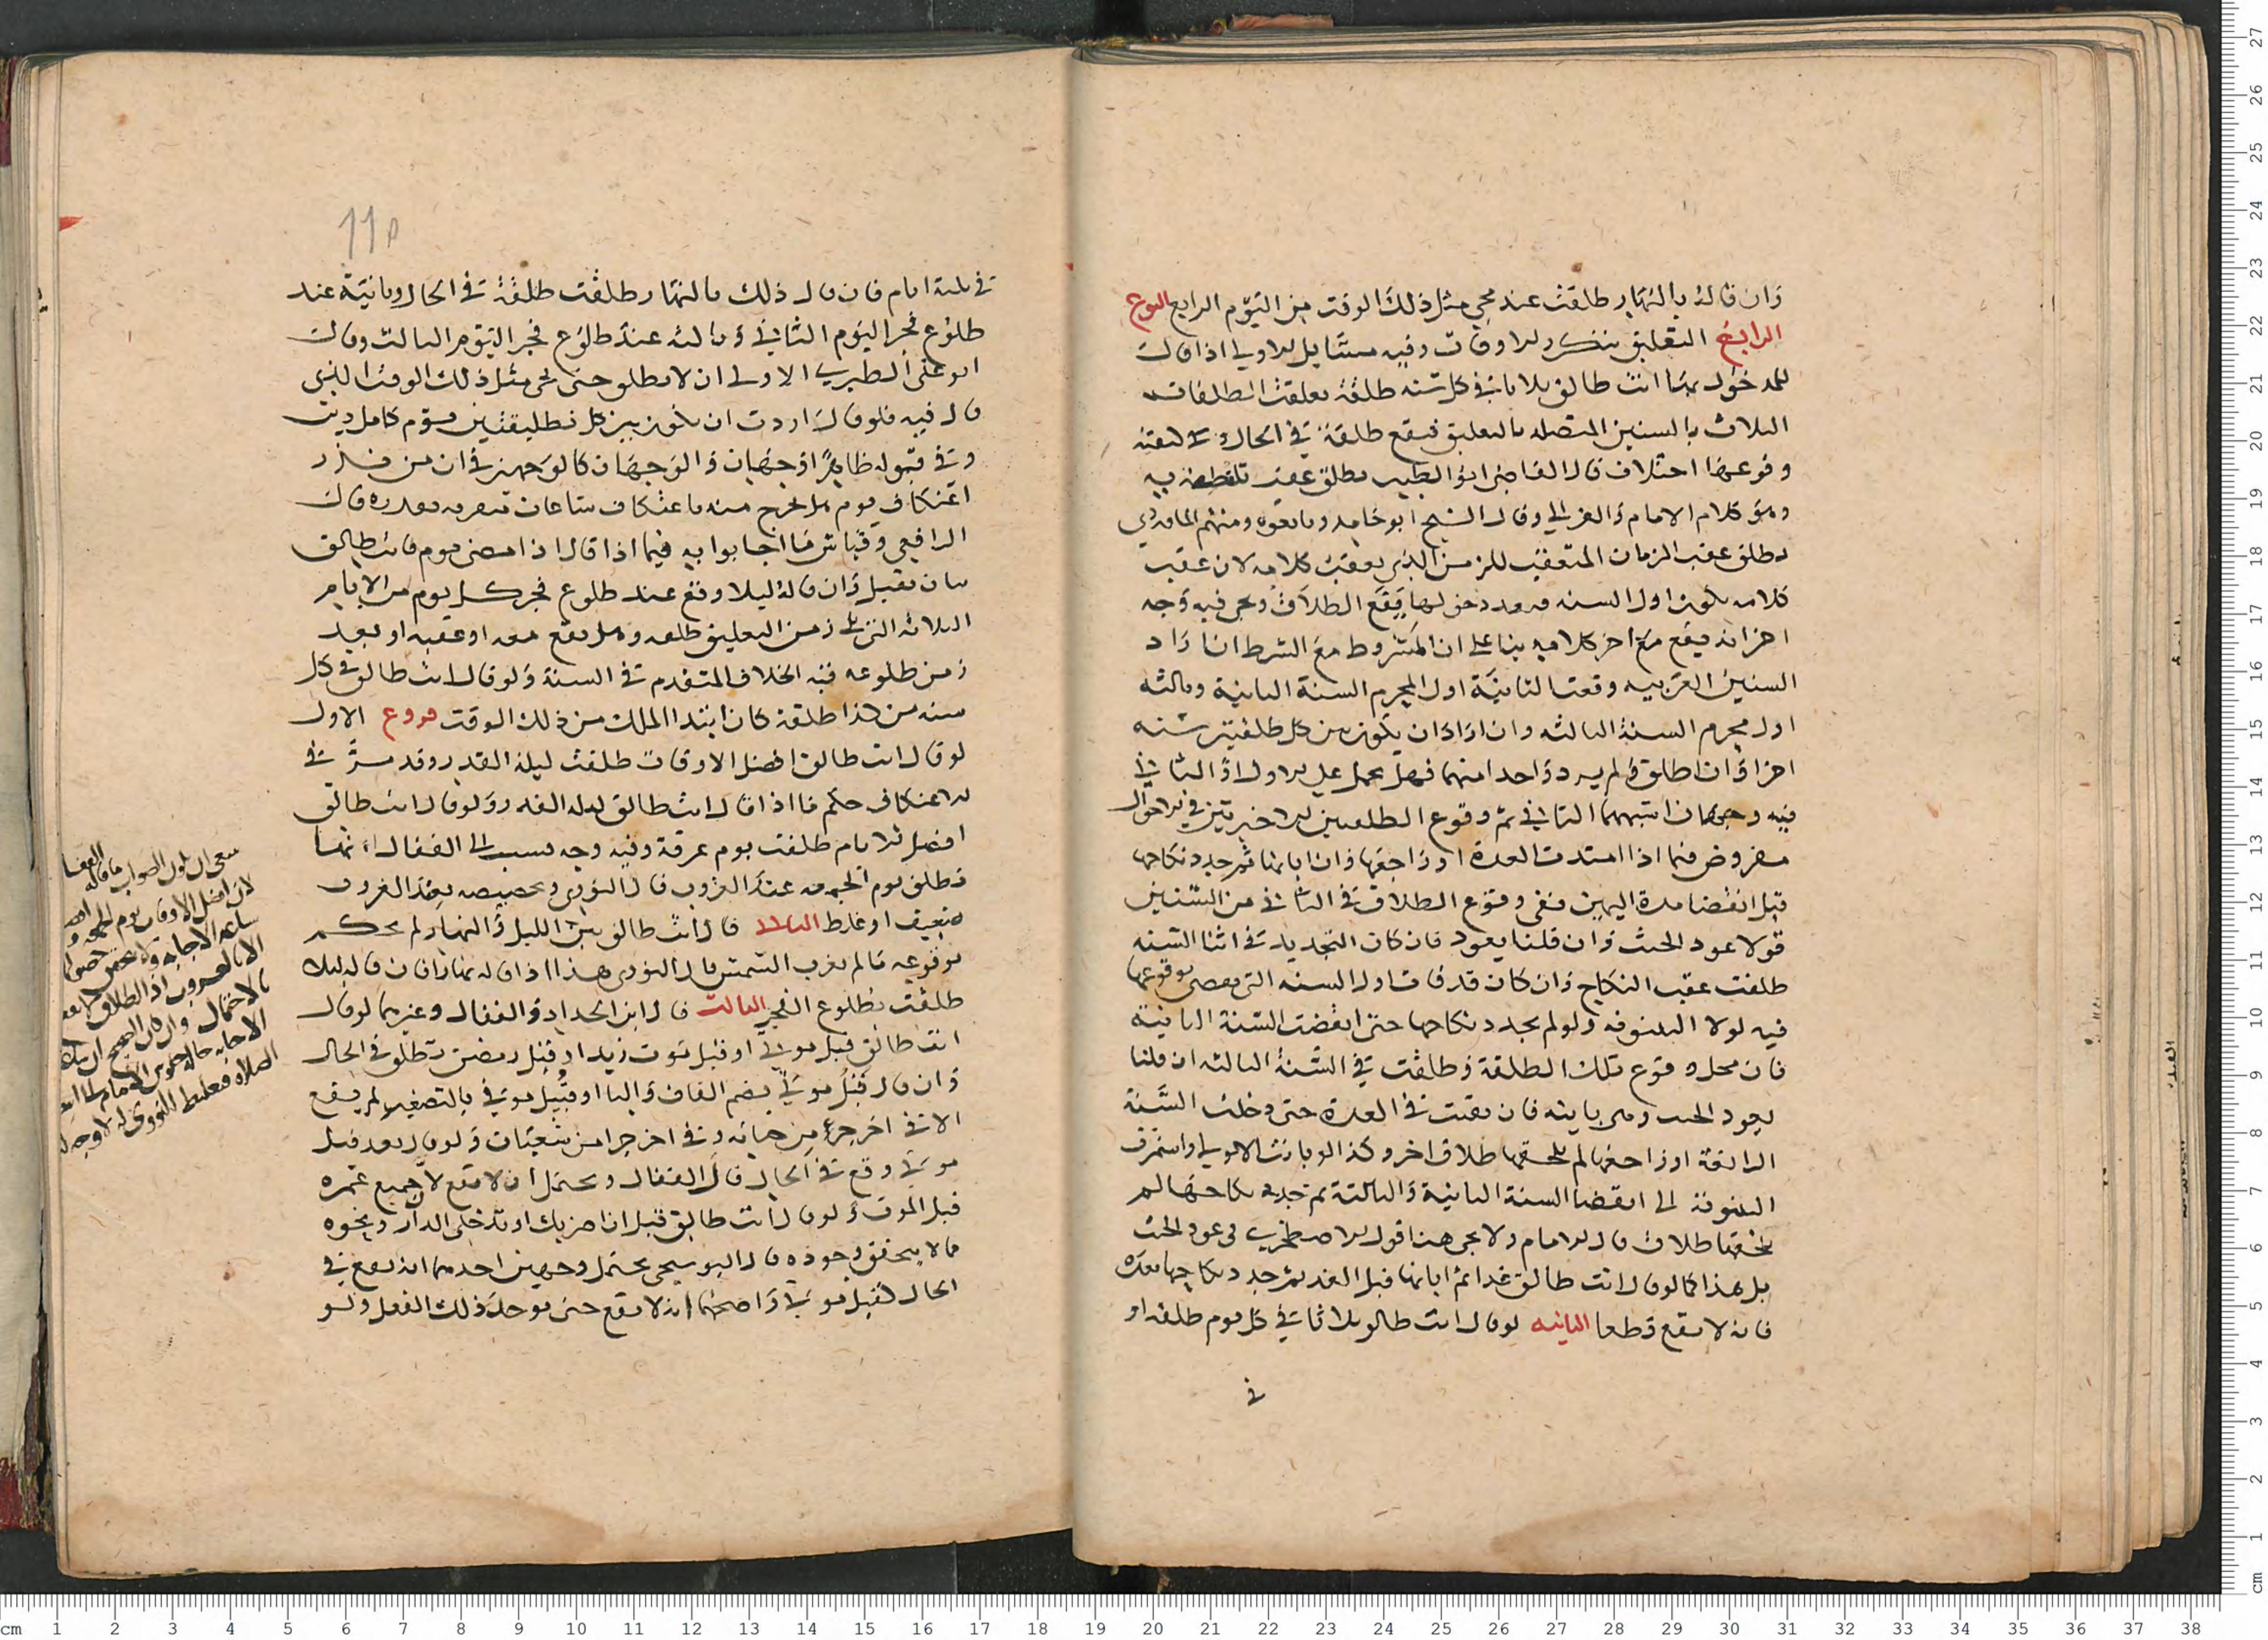 وان قاله بالنهار طلقت عند مجي مثل ذلك الوقت من اليوم الرابع النوع
الرابع التعليق بتكرر الاوقات وفيه مسائل الاولي اذا قال
للمدخول بها انت طالق ثلاثا في كل سنة طلقة تعلقت الطلقات
الثلاث بالسنين المتصلة بالتعليق فتقع طلقة في الحال وكيفية
وقوعها اختلاف قال القاضي ابو الطيب تطلق عقب تلفظه به
وهو كلام الامام والغزالي وقال الشيخ ابو حامد وتابعوه ومنهم الماوردي
تطلق عقب الزمان المتعقب للزمن الذي يعقب كلامه لان عقب
كلامه يكون اول السنة فبعد دخولها يقع الطلاق ويجي فيه وجه
اخر انه يقع مع اخر كلامه بنا علي ان المشروط مع الشرط ان اراد
السنين العربية وقعت الثانية اول المحرم السنة الثانية وثالثة
اول محرم السنة الثالثة وان اراد ان يكون بين كل طلقتين سنة
اخر او ان اطلق ولم يرد واحدا منهما فهل يحمل علي الاول او الثاني
فيه وجهان اشبههما الثاني ثم وقوع الطلقتين الاخيرتين في الاحوال
مفروض فيما اذا امتدت العدة او راجعها وان ابانها ثم جدد نكاحها
قبل انقضا مدة اليمين ففي وقوع الطلاق في الثاني من السنين
قولا عود الحنث وان قلنا يعود فان كان التجديد في اثنا السنة
طلقت عقب النكاح وان كان قد فات اول السنة التي مقتضي وقوعها
فيه لولا البينونة ولو لم يجدد نكاحها حتى انقضت السنة الثانية
فان محل وقوع تلك الطلقة وطلقت في السنة الثالثة ان قلنا
بعود الحنث وهي باينة فان بقيت في العدة حتى دخلت السنة
الرابعة او راجعها لم يلحقها طلاق اخر وكذا لو بانت الاولي واستمرت
البينونة الى انقضا السنة الثانية والثالثة ثم جدد نكاحها لم
يلحقها طلاق قال الامام ولا يجي هنا قول الاصطخري في عود الحنث
بل هذا كما لو قال انت طالق غدا ثم ابانها قبل الغد ثم جدد نكاحها بعده
فانه لا يقع قطعا الثانية لو قال انت طالق ثلاثا في كل يوم طلقة او
في
١١٥
في ثلثة ايام فان قال ذلك بالنهار طلقت طلقة في الحال وثانية عند
طلوع فجر اليوم الثاني وثالثة عند طلوع فجر اليوم الثالث وقال
ابو علي الطبري الاولى ان لا تطلق حتى يجي مثل ذلك الوقت الذي
قال فيه فلو قال اردت ان يكون بين كل تطليقتين يوم كامل دين
وفي قبوله ظاهرا وجهان والوجهان كالوجهين في ان من نذر
اعتكاف يوم هل يخرج منه باعتكاف ساعات متفرقة بقدره قال
الرافعي وقياس ما اجابوا به فيما اذا قال اذا مضى يوم فانت طالق
بان يقبل وان قاله ليلا وقع عند طلوع فجر كل يوم من الايام
الثلاثة التي تلي زمن التعليق طلقة وهل يقع معه او عقبه او بعيد
زمن طلوعه فيه الخلاف المتقدم في السنة ولو قال انت طالق في كل
سنة من هذا طلقة كان ابتدا الملك من ذلك الوقت فروع الاول
لو قال انت طالق افضل الاوقات طلقت ليلة القدر وقد مر في
الاعتكاف حكم ما اذا قال انت طالق ليلة القدر ولو قال انت طالق
افضل الايام طلقت يوم عرفة وفيه وجه نسب الى القفال انها
تطلق يوم الجمعة عند الغروب قال النووي وتخصيصه بعد الغروب
ضعيف او غلط الثاني قال انت طالق بين الليل والنهار لم يحكم
بوقوعه ما لم تغرب الشمس قال النووي هذا اذا قاله نهارا فان قاله ليلا
طلقت بطلوع الفجر الثالث قال ابن الحداد والقفال وغيرهما لو قال
انت طالق قبل موتي او قبل موت زيد او قبل رمضن تطلق في الحال
وان قال قبل موتي بضم القاف والبا او قبيل موتي بالتصغير لم يقع
الا في اخر جزء من حياته وفي اخر جزا من شعبان ولو قال بعد قبل
موتي وقع في الحال قال القفال ويحتمل ان لا يقع لان جميع عمره
قبل الموت ولو قال انت طالق قبل ان اضربك او تدخلي الدار ونحوه
مما لا يتحقق وجوده قال البوسنجي يحتمل وجهين احدهما انه يقع في
الحال كقبل موتي واصحهما انه لا يقع حتى يوجد ذلك الفعل ولو
ينبغي ان يكون الصواب ما قاله القفال
لان افضل الاوقات يوم الجمعة
ساعة الاجابة ولا يتحقق حصولها
الا بالغروب اذ الطلاق لا يقع
بالاحتمال وان كان الصحيح ان تلك
الاجابة حالة جلوس الامام
الصلاة فتغليط النووي له لا وجه له